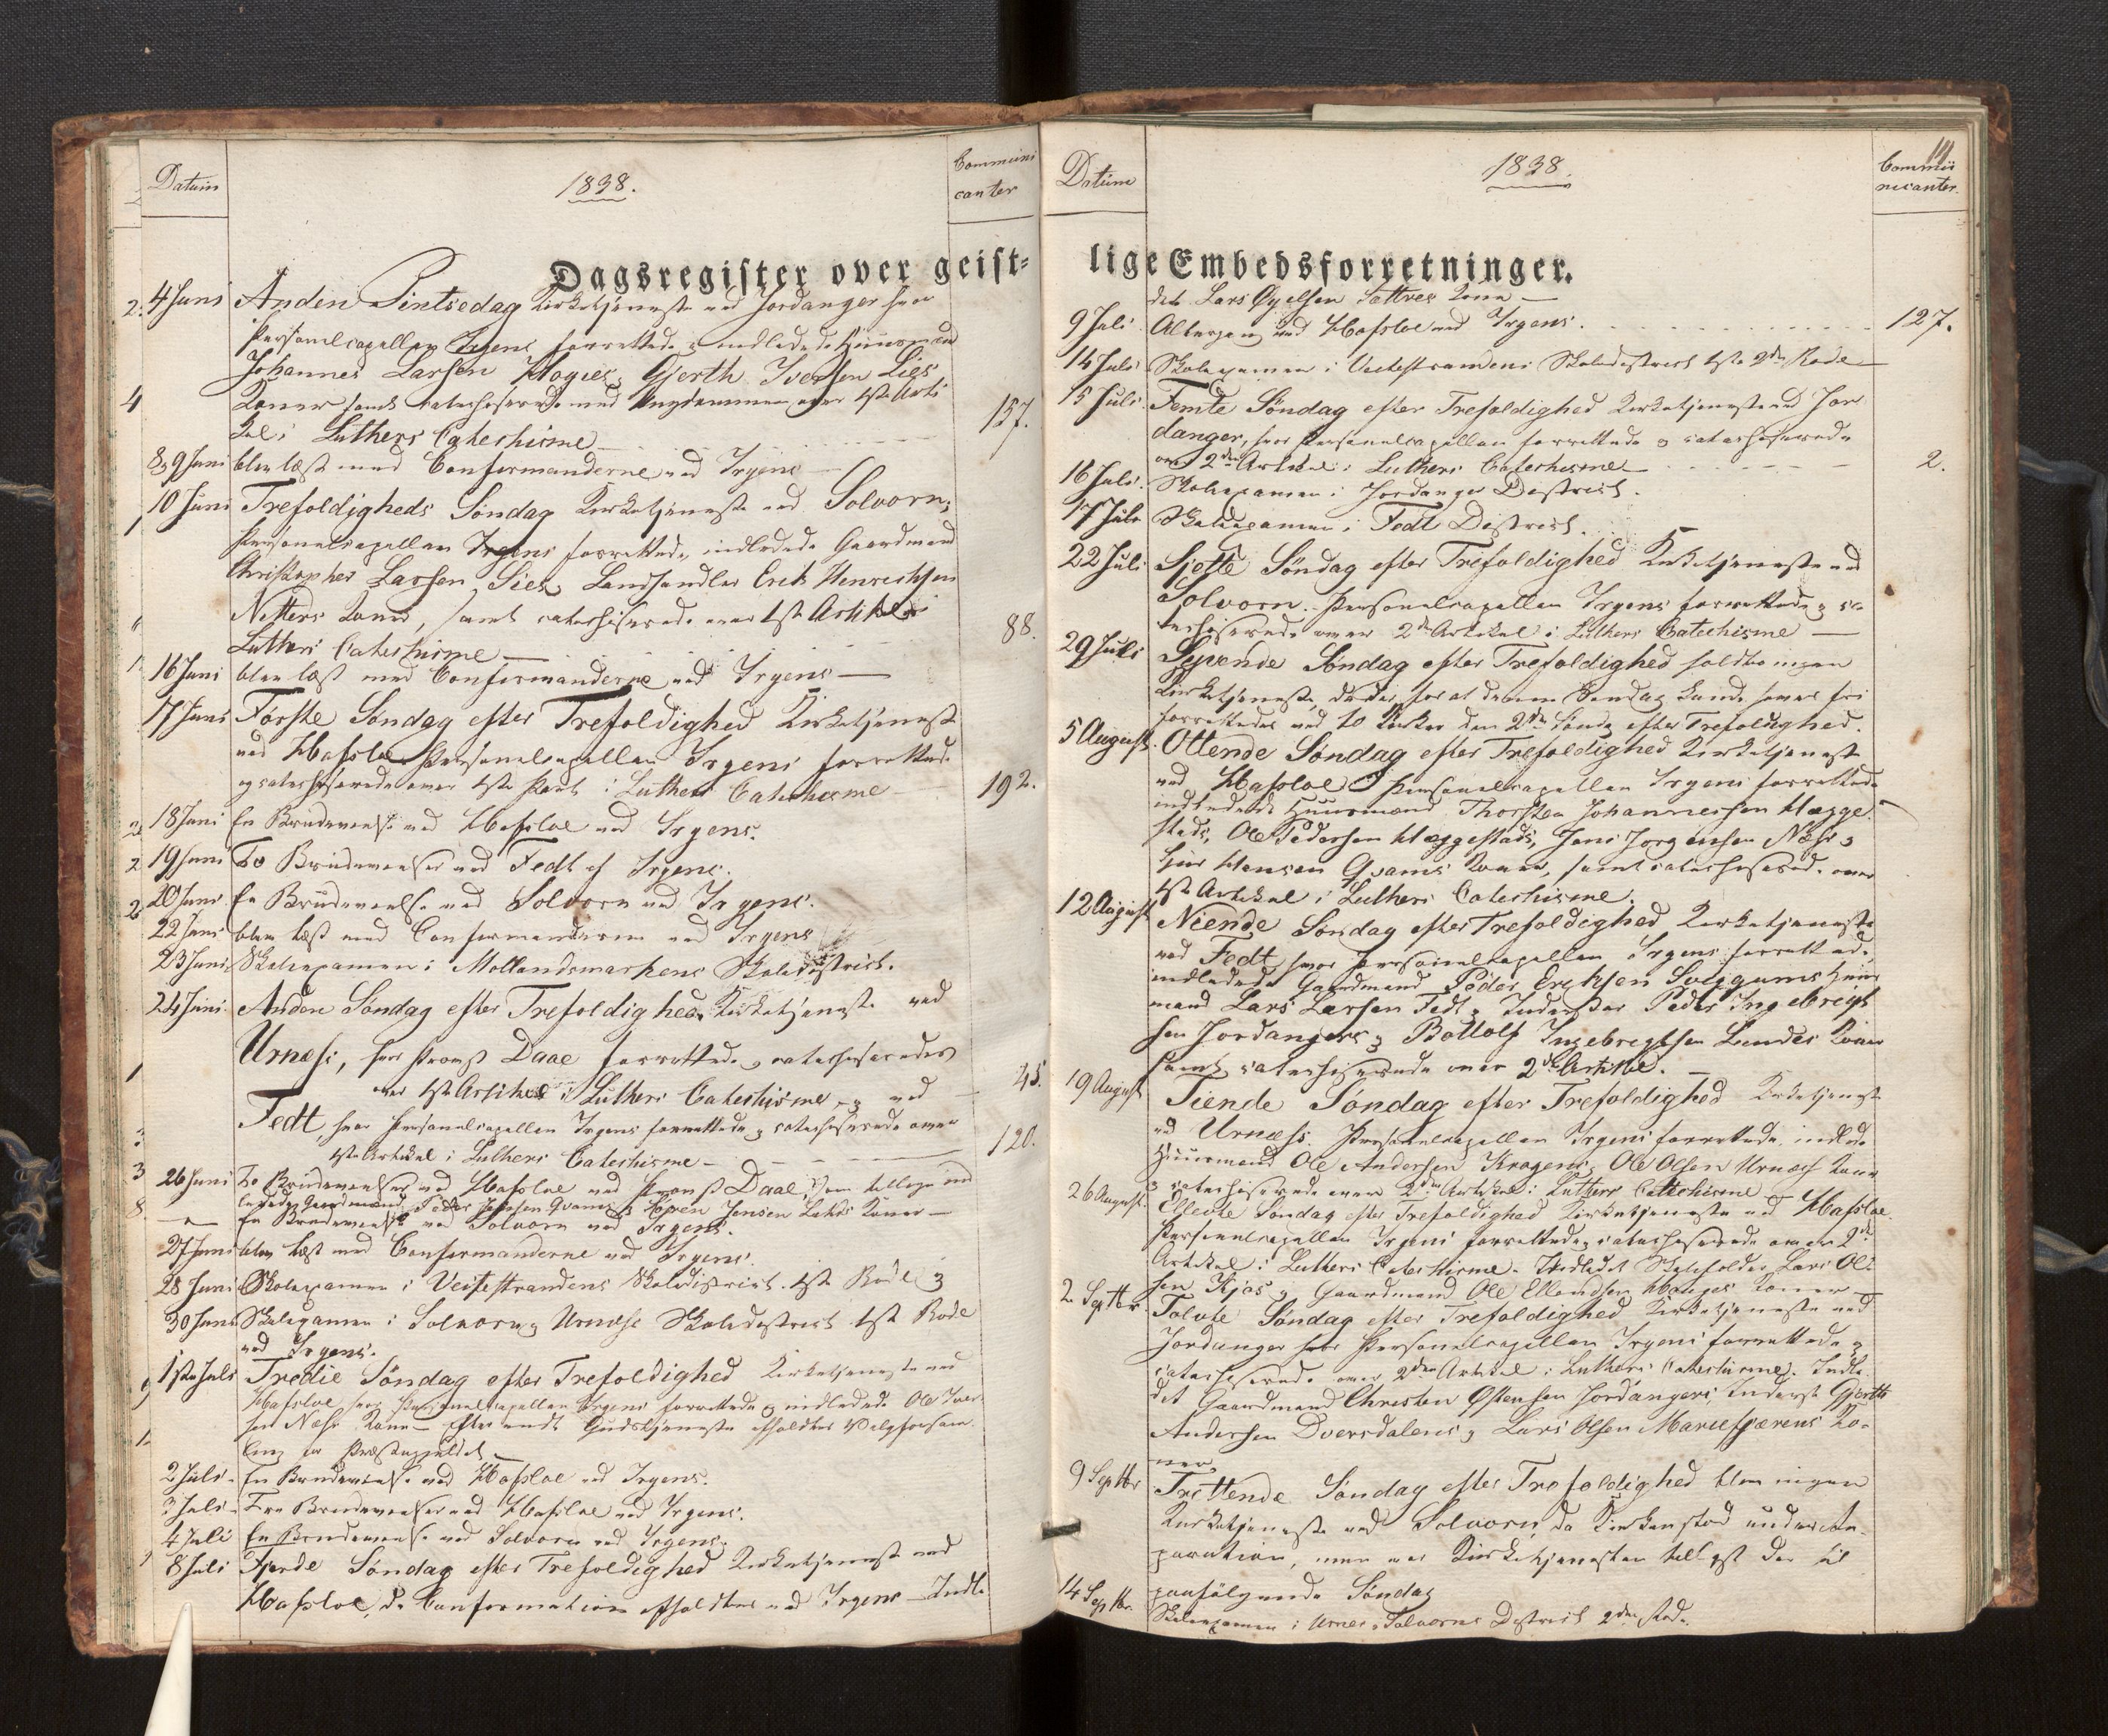 Datum
1838.
Communi
canter
Dagsregister over geist=
4 Juni Anden Pintsedag Kirketjeneste ved Jordanger hvor
Personelcapellan Irgens forrettede og indledede Huusmænd
Johannes Larsen Gjerth Iversen Lies
Koner samt catechiserede med Ungdommen over 1ste Arti
kel i Luthers Catechisme 157.
8, 9 Juni blev læst med Confirmanderne ved Irgens
10 Juni Trefoldigheds Søndag Kirketjeneste ved Solvorn,
Personelcapellan Irgens forrettede, indledede Gaardmand
Christopher Larsen Landhandler Erik Henrichsen
Koner, samt catechiserede over 1ste Artikel i
Luthers Catechisme 88.
16 Juni blev læst med Confirmanderne ved Irgens
17 Juni Første Søndag efter Trefoldighed Kirketjeneste
ved Hafsloe Personelcapellan Irgens forrettede
og catechiserede over 1ste Part i Luthers Catechisme 192.
18 Juni En Brudevielse ved Hafsloe ved Irgens.
19 Juni To Brudevielser ved Fedt af Irgens.
20 Juni En Brudevielse ved Solvorn ved Irgens.
22 Juni blev læst med Confirmanderne ved Irgens
23 Juni Skoleexamen i Mollandsmarkens Skoledistrict.
24 Juni Anden Søndag efter Trefoldighed Kirketjeneste ved
Urnæss, hvor Provst Daae forrettede og catechiserede
over 1ste Artikel i Luthers Catechisme og ved 45.
Fedt, hvor Personelcapellan Irgens forrettede og catechiserede over
1ste Artikel i Luthers Catechisme 120.
26 Juni To Brudevielser ved Hafsloe ved Provst Daae, som tillige ind
ledede Gaardmænd Peder Qvames Jensen Koner
En Brudevielse ved Solvorn ved Irgens.
27 Juni blev læst med Confirmanderne ved Irgens.
28 Juni Skoleexamen i Veitestrandens Skoledistrict 1ste Rode
30 Juni Skoleexamen i Solvorn og Urnæss Skoledistrict 1ste Rode
ved Irgens.
1ste Juli Tredie Søndag efter Trefoldighed Kirketjeneste ved
Hafsloe hvor Personelcapellan Irgens forrettede og indledede Ole Iver
sen Næss Kone - efter endt Gudstjeneste afholdtes Valgforsam
ling for Præstegjeldet
2 Juli En Brudevielse ved Hafsloe ved Irgens.
3 Juli Tre Brudevielser ved Hafsloe ved Irgens.
4 Juli En Brudevielse ved Solvorn ved Irgens.
8 Juli Fjerde Søndag efter Trefoldighed Kirketjeneste ved
Hafsloe, da Confirmation afholdtes ved Irgens - Indle
Datum
1838.
Commu
nicanter.
lige Embedsforretninger.
det Lars Kone
9 Juli Altergang ved Hafsloe ved Irgens. 127.
14 Juli Skoleexamen i Veitestrandens Skoledistrict 2den Rode
15 Juli Femte Søndag efter Trefoldighed Kirketjeneste ved Jor
danger, hvor Personelcapellan forrettede og catechiserede
over 2den Artikel i Luthers Catechisme 2.
16 Juli Skoleexamen i Jordanger District.
17 Juli Skoleexamen i Fedt District.
22 Juli Sjette Søndag efter Trefoldighed Kirketjeneste ved
Solvorn. Personelcapellan Irgens forrettede og ca
techiserede over 2den Artikel i Luthers Catechisme
29 Juli Syvende Søndag efter Trefoldighed holdtes ingen
Kirketjeneste, for at denne Søndag kunde
forrettedes ved to Kirker den 2den Søndag efter Trefoldighed.
5 August Ottende Søndag efter Trefoldighed Kirketjeneste
ved Hafsloe Personelcapellan Irgens forrettede
indledede Huusmænd Thorsten Johannessen Hægge
stads, Ole Pedersen Hæggestads, Jens Jørgensen Næss og
Hansen Qvams Koner, samt catechiserede over
1ste Artikel i Luthers Catechisme.
12 August Niende Søndag efter Trefoldighed Kirketjeneste
ved Fedt hvor Personelcapellan Irgens forrettede
indledede Gaardmand Peder Eriksen Huus
mand Lars Larsen Fedt, Inderster Peder Ingebrigt
sen Jordangers og Bottolf Ingebrigtsen Lundes Koner
samt catechiserede over 2den Artikel.
19 August Tiende Søndag efter Trefoldighed Kirketjeneste
ved Urnæss. Personelcapellan Irgens forrettede, indlede
Huusmænd Ole Andersen Kragens, Ole Olsen Urnæss Koner
og catechiserede over 2den Artikel i Luthers Catechisme
26 August Ellevte Søndag efter Trefoldighed Kirketjeneste ved Hafsloe.
Personelcapellan Irgens forrettede og catechiserede over 2den
Artikel i Luthers Catechisme. Indledet Skoleholder Lars Ol
sen Gaardmand Ole Ellendsen Koner
2 Septbr Tolvte Søndag efter Trefoldighed Kirketjeneste ved
Jordanger hvor Personelcapellan Irgens forrettede og
catechiserede over 2den Artikel i Luthers Catechisme. Indle
det Gaardmand Christen Østensen Jordangers, Inderst Gjerth
Andersen Dversdalens og Lars Olsen Ko-
ner.
9 Septbr Trettende Søndag efter Trefoldighed blev ingen
Kirketjeneste ved Solvorn, da Kirken stod under Re-
paration, men var Kirketjenesten tillyst der til
paafølgende Søndag
14 Septbr. Skoleexamen i Urnes Solvorns District 2den Rode.